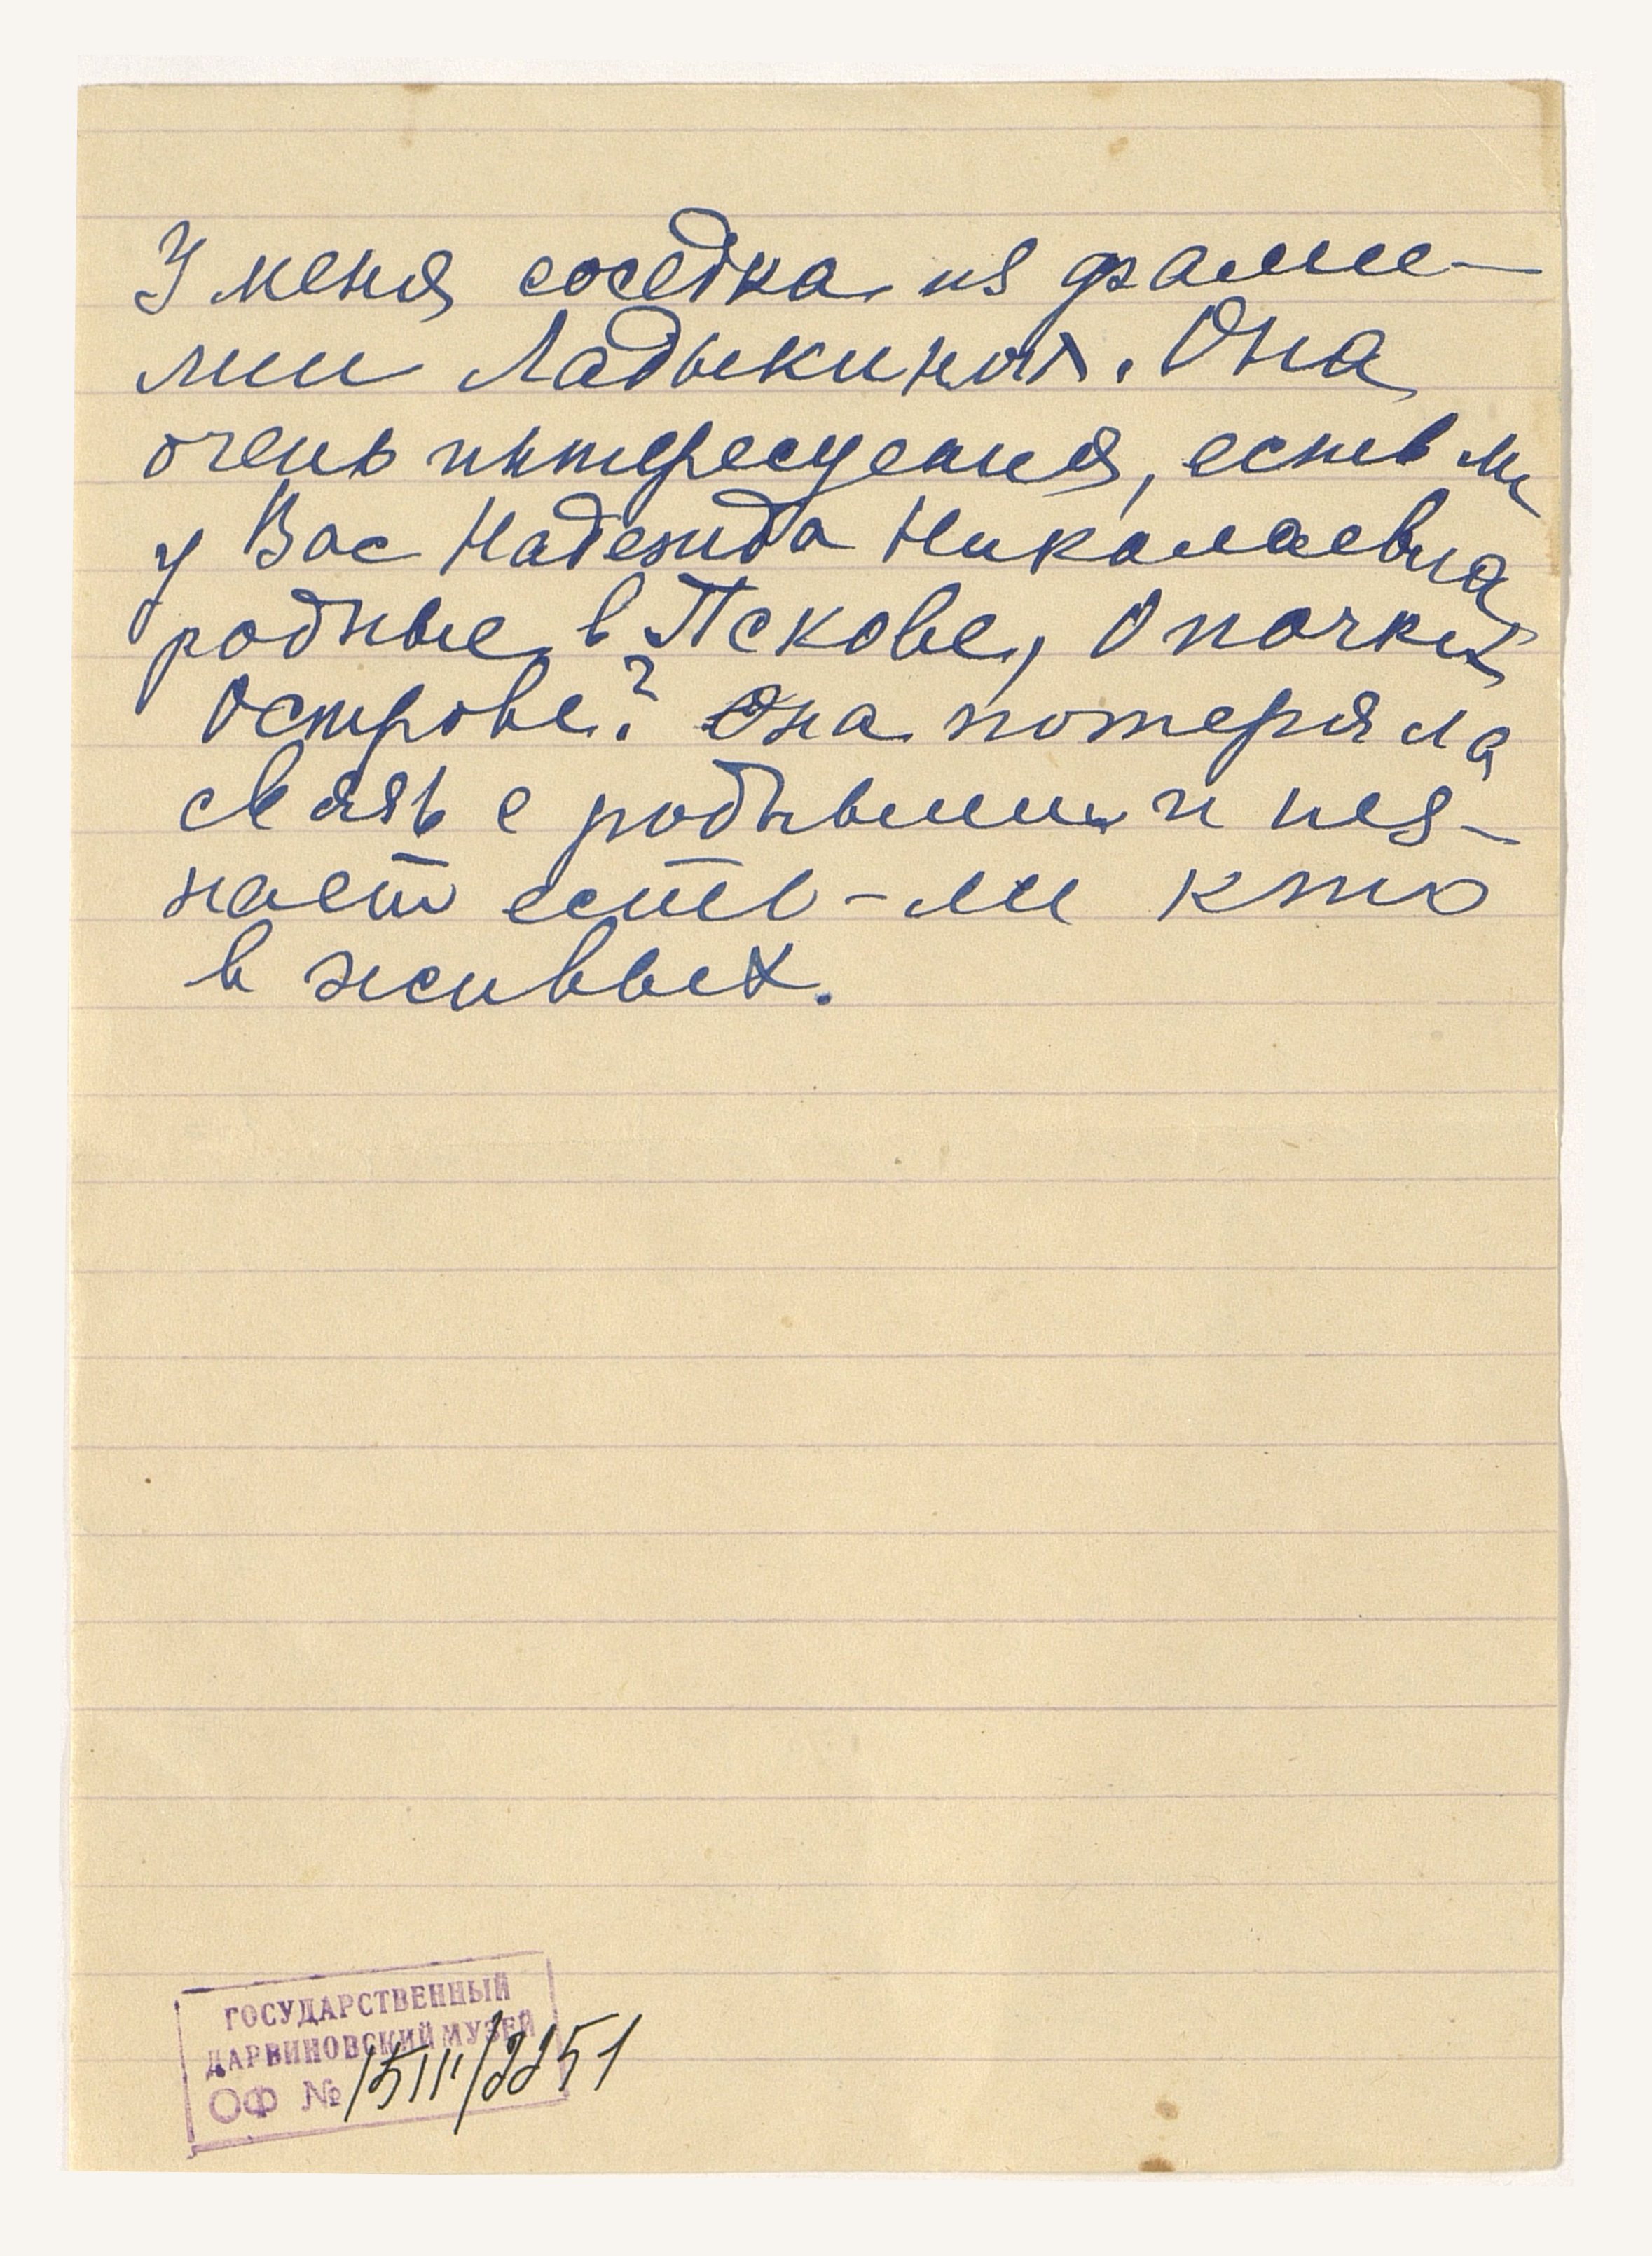 У меня соседка из фами-
лии Ладыкиных. Она
очень интересуется, есть ли
у Вас Надежда Николаевна
родные в Пскове, Опочке
Острове? Она потеряла
связь с родными и не з-
нает есть-ли кто
в живых.
ГОСУДАРСТВЕННЫЙ
ДАРВИНОВСКИЙ МУЗЕЙ
ОФ № 15111/2251